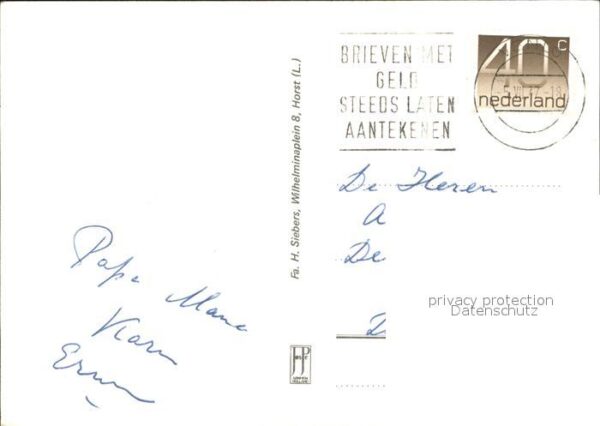 BRIEVEN MET
GELD
STEEDS LATEN
AANTEKENEN
40 c
nederland
Fa. H. Siebers, Wilhelminaplein 8, Horst (L.)
De Heren
A
De
D
privacy protection
Datenschutz
Papa Mama